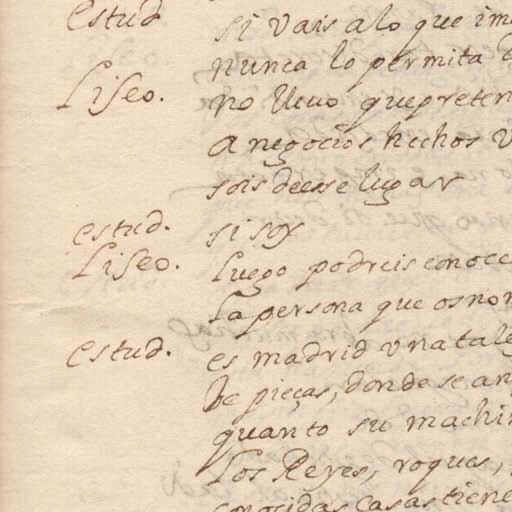 estud. si vais a lo que im
nunca lo permita D
Liseo. no lleuo que preten
a negocios hechos v
sois de esse lugar
estud. si soy
Liseo. luego podreis conoce
la persona que os nom
estud. es madrid vna tale
de pieças, donde se an
quanto su machin
los Reyes, roques,
conocidas casas tiene